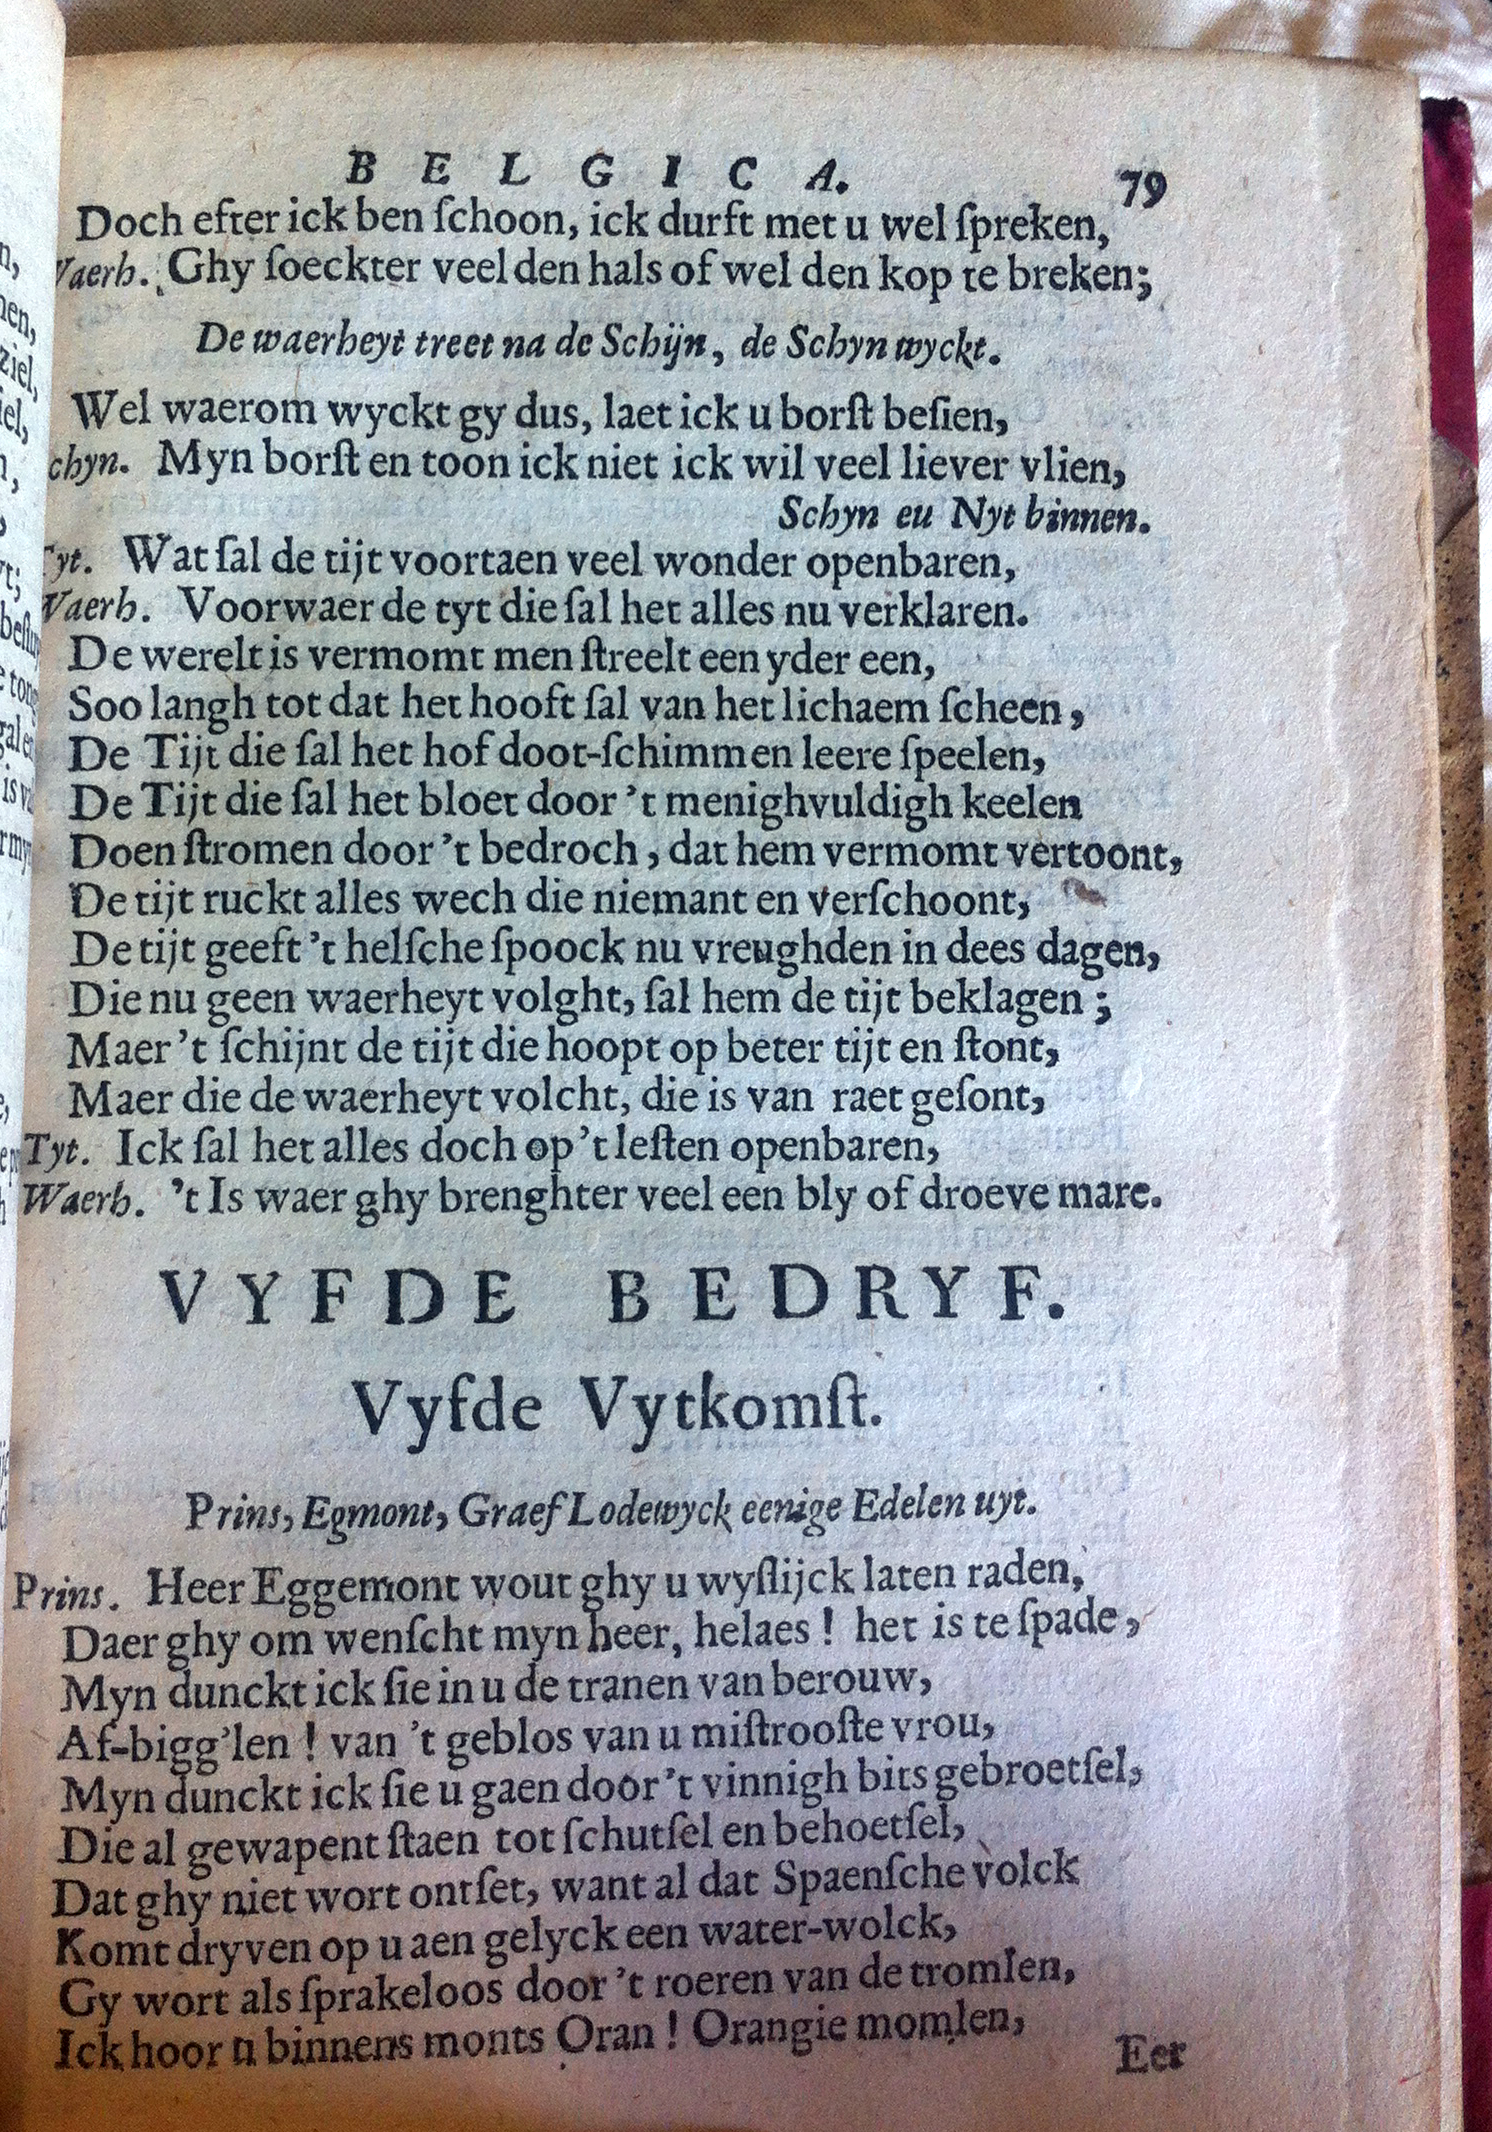 BELGICA. 79
Doch efter ick ben ſchoon, ick durft met u wel ſpreken,
Vaerh. Ghy ſoeckter veel den hals of wel den kop te breken;
De waerheyt treet na de Schijn, de Schyn wyckt.
Wel waerom wyckt gy dus, laet ick u borſt beſien,
chyn. Myn borſt en toon ick niet ick wil veel liever vlien,
Schyn eu Nyt binnen.
Tyt. Wat ſal de tijt voortaen veel wonder openbaren,
Vaerh. Voorwaer de tyt die ſal het alles nu verklaren.
De werelt is vermomt men ſtreelt een yder een,
Soo langh tot dat het hooft ſal van het lichaem ſcheen,
De Tijt die ſal het hof doot-ſchimmen leere ſpeelen,
De Tijt die ſal het bloet door 't menighvuldigh keelen
Doen ſtromen door 't bedroch, dat hem vermomt vertoont,
De tijt ruckt alles wech die niemant en verſchoont,
De tijt geeft 't helſche ſpoock nu vreughden in dees dagen,
Die nu geen waerheyt volght, ſal hem de tijt beklagen;
Maer 't ſchijnt de tijt die hoopt op beter tijt en ſtont,
Maer die de waerheyt volcht, die is van raet geſont,
Tyt. Ick ſal het alles doch op 't leſten openbaren,
Waerh. 't Is waer ghy brenghter veel een bly of droeve mare.
VYFDE BEDRYF.
Vyfde Vytkomſt.
Prins, Egmont, Graef Lodewyck eenige Edelen uyt.
Prins. Heer Eggemont wout ghy u wyſlijck laten raden,
Daer ghy om wenſcht myn heer, helaes! het is te ſpade,
Myn dunckt ick ſie in u de tranen van berouw,
Af-bigg'len! van 't geblos van u miſtrooſte vrou,
Myn dunckt ick ſie u gaen door 't vinnigh bits gebroetſel,
Die al gewapent ſtaen tot ſchutſel en behoetſel,
Dat ghy niet wort ontſet, want al dat Spaenſche volck
Komt dryven op u aen gelyck een water-wolck,
Gy wort als ſprakeloos door 't roeren van de tromlen,
Ick hoor u binnens monts Oran! Orangie momlen,
Eer